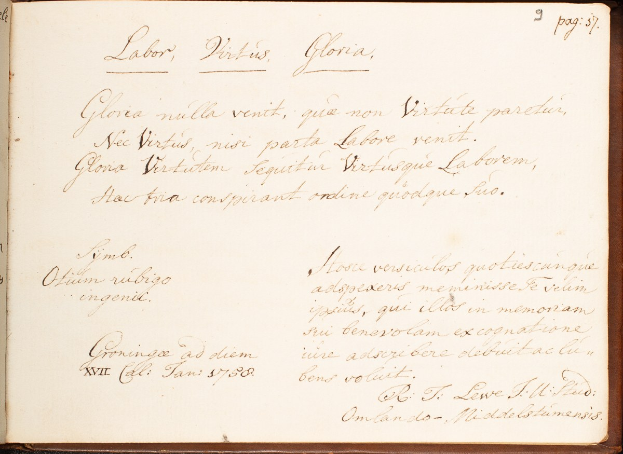 9 pag: 57.
Labor, Virtus, Gloria.
Gloria nulla venit, quæ non Virtute paretur,
Nec Virtus, nisi parta Labore venit.
Gloria Virtutem sequitur Virtusque Laborem,
Haec tria conspirant ordine quodque suo.
Symb.
Otium rubigo
ingenii.
Groningæ ad diem
XVII. Cal: Jan: 1758.
Hosce versiculos quotiescunque
adspexeris meminisse Te velim
ipsius, qui illos in memoriam
sui benevolam ex cognatione
iure adscribere debuit ac lu-
bens voluit.
R: T: Lewe J: U: Stud:
Omlando-Middelstumensis.